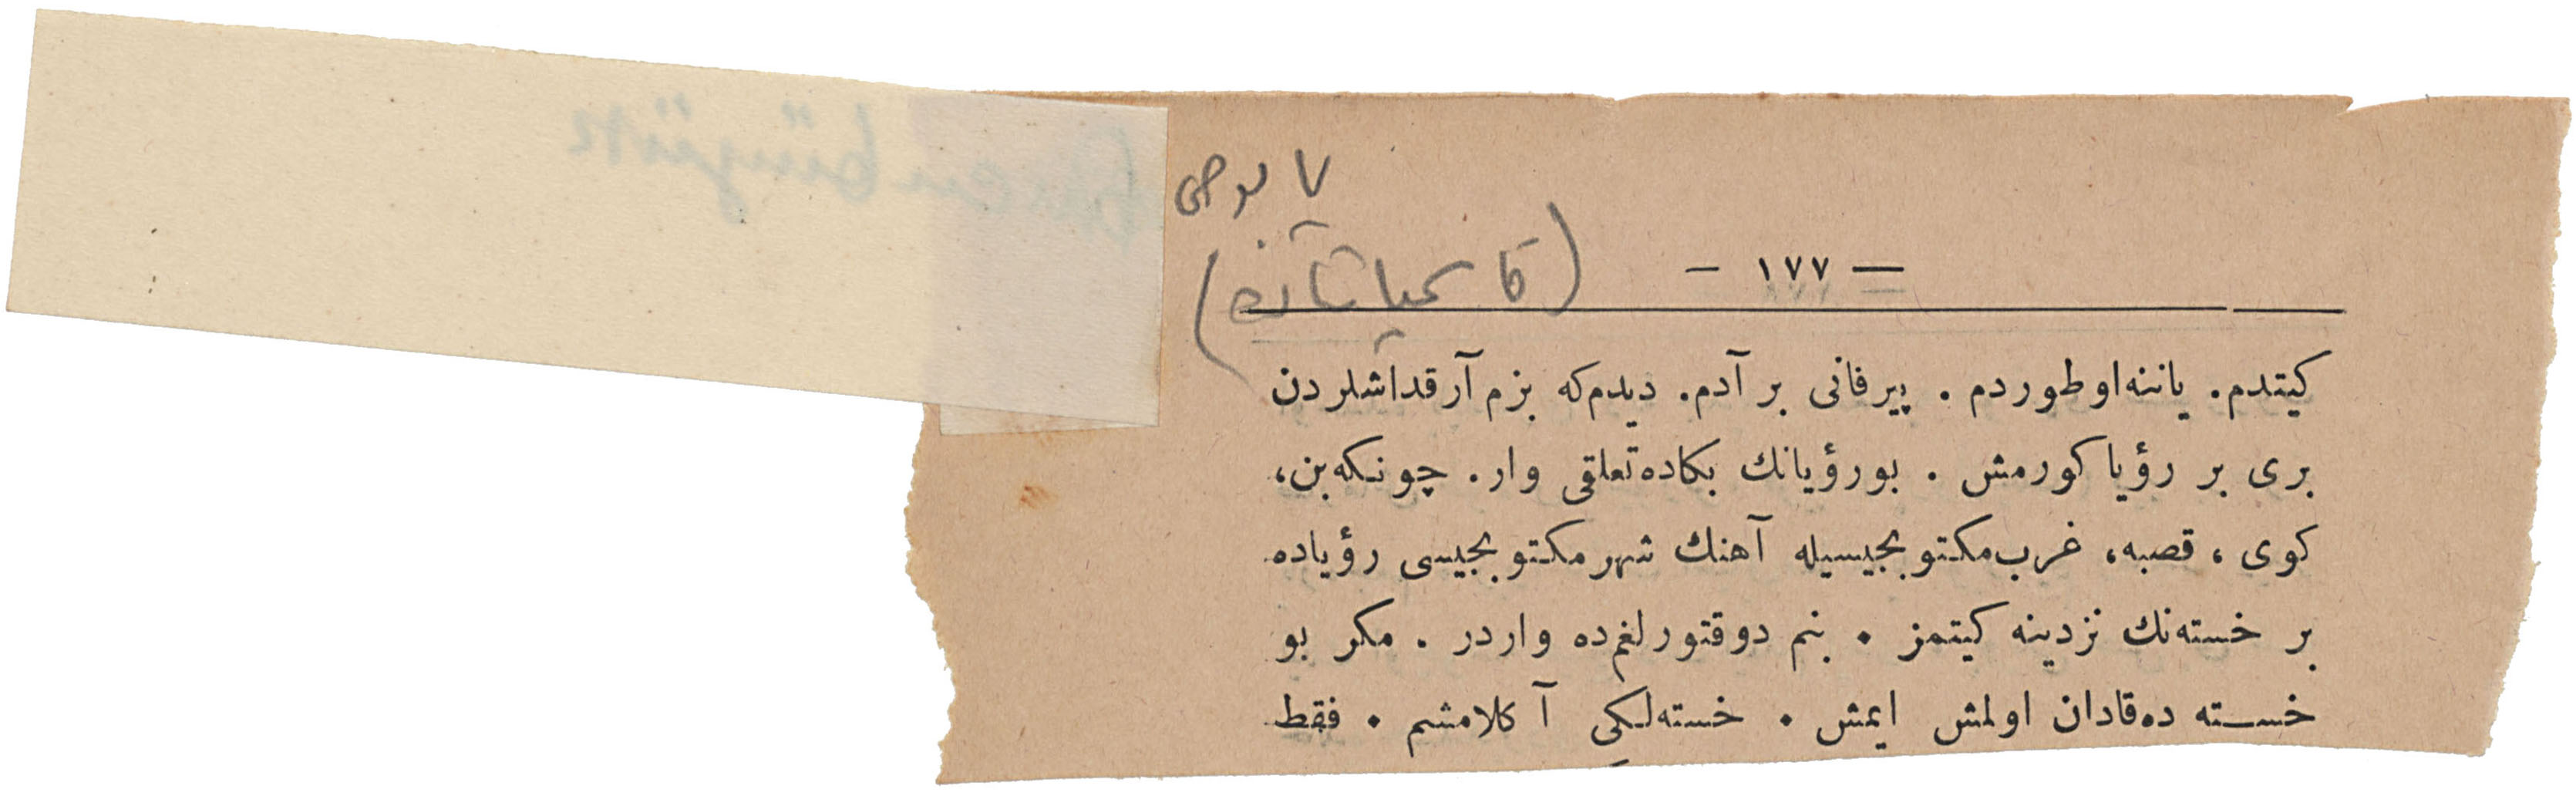 — ١٧٧ —
كیتدم. یاننه اوطوردم . پیرفانی بر آدم. دیدم‌كه بزم آرقداشلردن
بری بر رؤیا كورمش . بورؤیانك بكاده‌تعلقی وار. چونكه‌بن،
كوی ، قصبه، غرب‌مكتوبجیسیله آهنك شهر مكتوبجیسی رؤیاده
بر خسته‌نك نزدینه كیتمز . بنم دوقتورلغم‌ده واردر . مكر بو
خسته ده‌قادان اولمش ایمش . خسته‌لكی آكلامشم . فقط